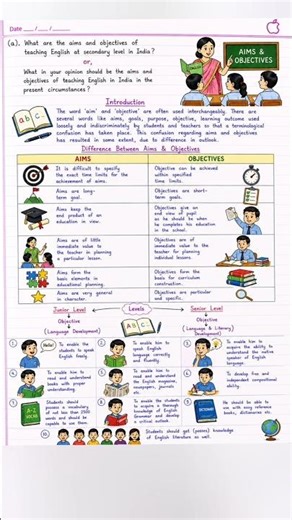 Date ___/___/___
(a). What are the aims and objectives of
teaching English at secondary level in India?
or,
What in your opinion should be the aims and
objectives of teaching English in India in the
present circumstances?
AIMS &
OBJECTIVES
ABC
Introduction
The word 'aim' and 'objective' are often used interchangeably. There are
several words like aims, goals, purpose, objective, learning outcome used
loosely and indiscriminately by students and teachers so that a terminological
confusion has taken place. This confusion regarding aims and objectives
has resulted in some extent, due to difference in outlook.
Difference Between Aims & Objectives
AIMS
OBJECTIVES
It is difficult to specify
the exact time limits for the
achievement of aims.
Objective can be achieved
within specified
time limits.
Aims are long-
term goal.
Objectives are short-
term goals.
Aims keep the
end product of an
education in view.
Objectives give an
end view of pupil
as he should be when
he completes his education
in the school.
Aims are of little
immediate value to
the teacher in planning
a particular lesson.
Objectives are of
immediate value to the
teacher for planning
individual lessons.
Aims form the
basic elements in
educational planning.
Objectives form the
basis for curriculum
construction.
Aims are very general
in character.
Objectives are particular
and specific.
Junior Level
Levels
Senior Level
Objective
(Language Development)
ABC
Objective
(Language & Literary)
Development)
1. Hello! To enable the
students to speak
English freely.
2. To enable him to
speak English
language correctly
and fluently.
3. To enable him to
acquire the ability to
understand the native
speaker of English
language.
4. To enable him to
read and understand
books with proper
understanding.
5. To enable him to
read and understand
the English magazines,
newspaper, journals
etc.
6. To develop free and
independent compositional
ability.
7. A-Z
VOCAB
Students should
possess a vocabulary
of not less than 2500
words and should be
capable to use them.
8. To enable the students
to acquire a thorough
knowledge of English
Grammar and develop
a critical outlook.
9. DICTIONARY
He should be able to
use with easy reference
books, dictionaries etc.
10. Students should get (posses) knowledge
of English literature as well.